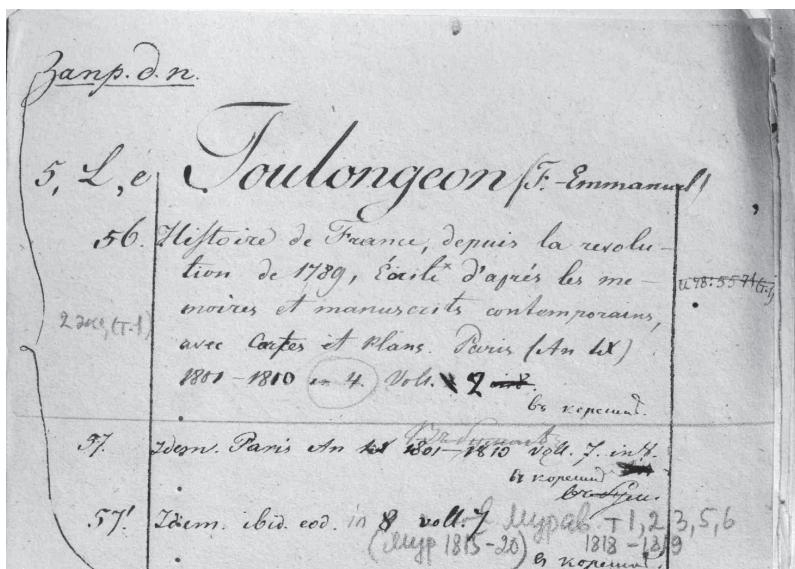 Запр. д. п.
5, L, e Toulongeon (F. Emmanuel)
56. Histoire de France, depuis la revolu-
tion de 1789, Écrite d'aprés les me-
moires et manuscrits contemporains,
2 экз, (т. 1)
avec Cartes et Plans. Paris (An IX)
1801-1810 in 4. Voll. 2
въ корешк.
57. Idem. Paris An 1801-1810 voll. 7. in 8.
въ корешк
57! Idem. ibid. eod. in 8 voll. 7 Мурав. т 1, 2, 3, 5, 6
(Мур 1815-20) 1818-1819
в корешк.